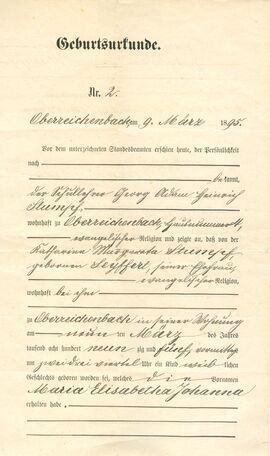 Geburtsurkunde.
Nr. 2.
Oberreichenbach am 9. März 1895.
Vor dem unterzeichneten Standesbeamten erschien heute, der Persönlichkeit
nach bekannt,
der Schullehrer Georg Adam Heinrich
Stumpf,
wohnhaft zu Oberreichenbach, Hausnummer 4,
evangelischer Religion und zeigte an, daß von der
Katharina Margareta Stumpf,
geborenen Seyffert, seiner Ehefrau
evangelischer Religion,
wohnhaft bei ihm
zu Oberreichenbach in seiner Wohnung
am neun ten März des Jahres
tausend acht hundert neun zig und fünf, vormittags
um zwei drei viertel Uhr ein Kind weib lichen
Geschlechts geboren worden sei, welches die Vornamen
Maria Elisabetha Johanna
erhalten habe.